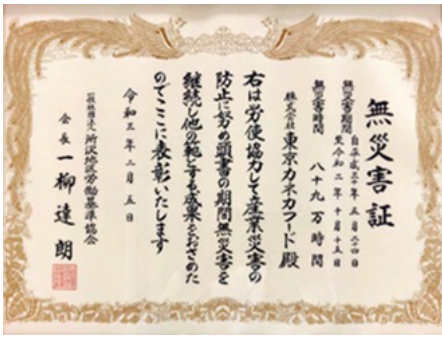 無災害証
無災害期間 自 平成三十年 五月二十四日
至 令和二年 十月十五日
無災害時間 八十九万時間
株式会社 東京カネカフード 殿
右は労使協力して産業災害の
防止に努め頭書の期間無災害を
継続し他の範とする成果をおさめた
のでここに表彰いたします
令和三年二月五日
一般社団法人 所沢地区労働基準協会
会長 一柳達朗